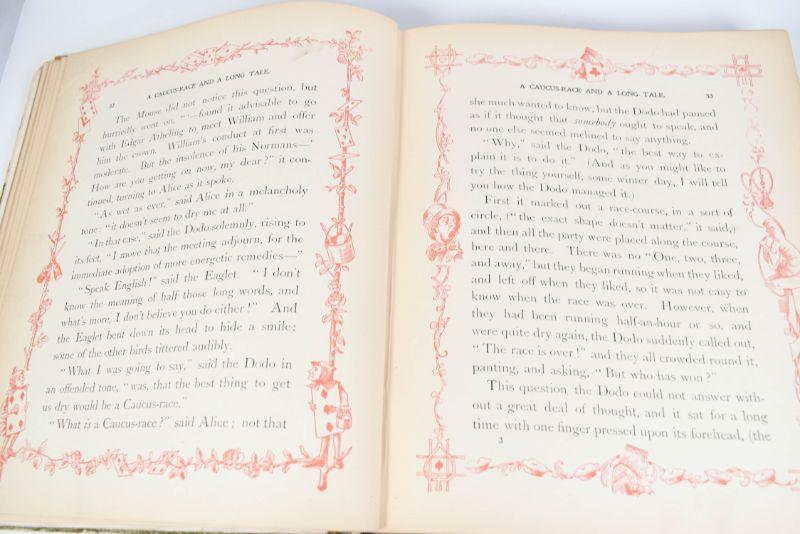 32
A CAUCUS-RACE AND A LONG TALE.
The Mouse did not notice this question, but
hurriedly went on, "'—found it advisable to go
with Edgar Atheling to meet William and offer
him the crown. William's conduct at first was
moderate. But the insolence of his Normans—'
How are you getting on now, my dear?" it con-
tinued, turning to Alice as it spoke.
"As wet as ever," said Alice in a melancholy
tone: "it doesn't seem to dry me at all."
"In that case," said the Dodo solemnly, rising to
its feet, "I move that the meeting adjourn, for the
immediate adoption of more energetic remedies—"
"Speak English!" said the Eaglet. "I don't
know the meaning of half those long words, and
what's more, I don't believe you do either!" And
the Eaglet bent down its head to hide a smile:
some of the other birds tittered audibly.
"What I was going to say," said the Dodo in
an offended tone, "was, that the best thing to get
us dry would be a Caucus-race."
"What is a Caucus-race?" said Alice; not that
A CAUCUS-RACE AND A LONG TALE.
33
she much wanted to know, but the Dodo had paused
as if it thought that somebody ought to speak, and
no one else seemed inclined to say anything.
"Why," said the Dodo, "the best way to ex-
plain it is to do it." (And as you might like to
try the thing yourself, some winter day, I will tell
you how the Dodo managed it.)
First it marked out a race-course, in a sort of
circle, ("the exact shape doesn't matter," it said,)
and then all the party were placed along the course,
here and there. There was no "One, two, three,
and away," but they began running when they liked,
and left off when they liked, so it was not easy to
know when the race was over. However, when
they had been running half-an-hour or so, and
were quite dry again, the Dodo suddenly called out,
"The race is over!" and they all crowded round it,
panting, and asking, "But who has won?"
This question the Dodo could not answer with-
out a great deal of thought, and it sat for a long
time with one finger pressed upon its forehead, (the
3